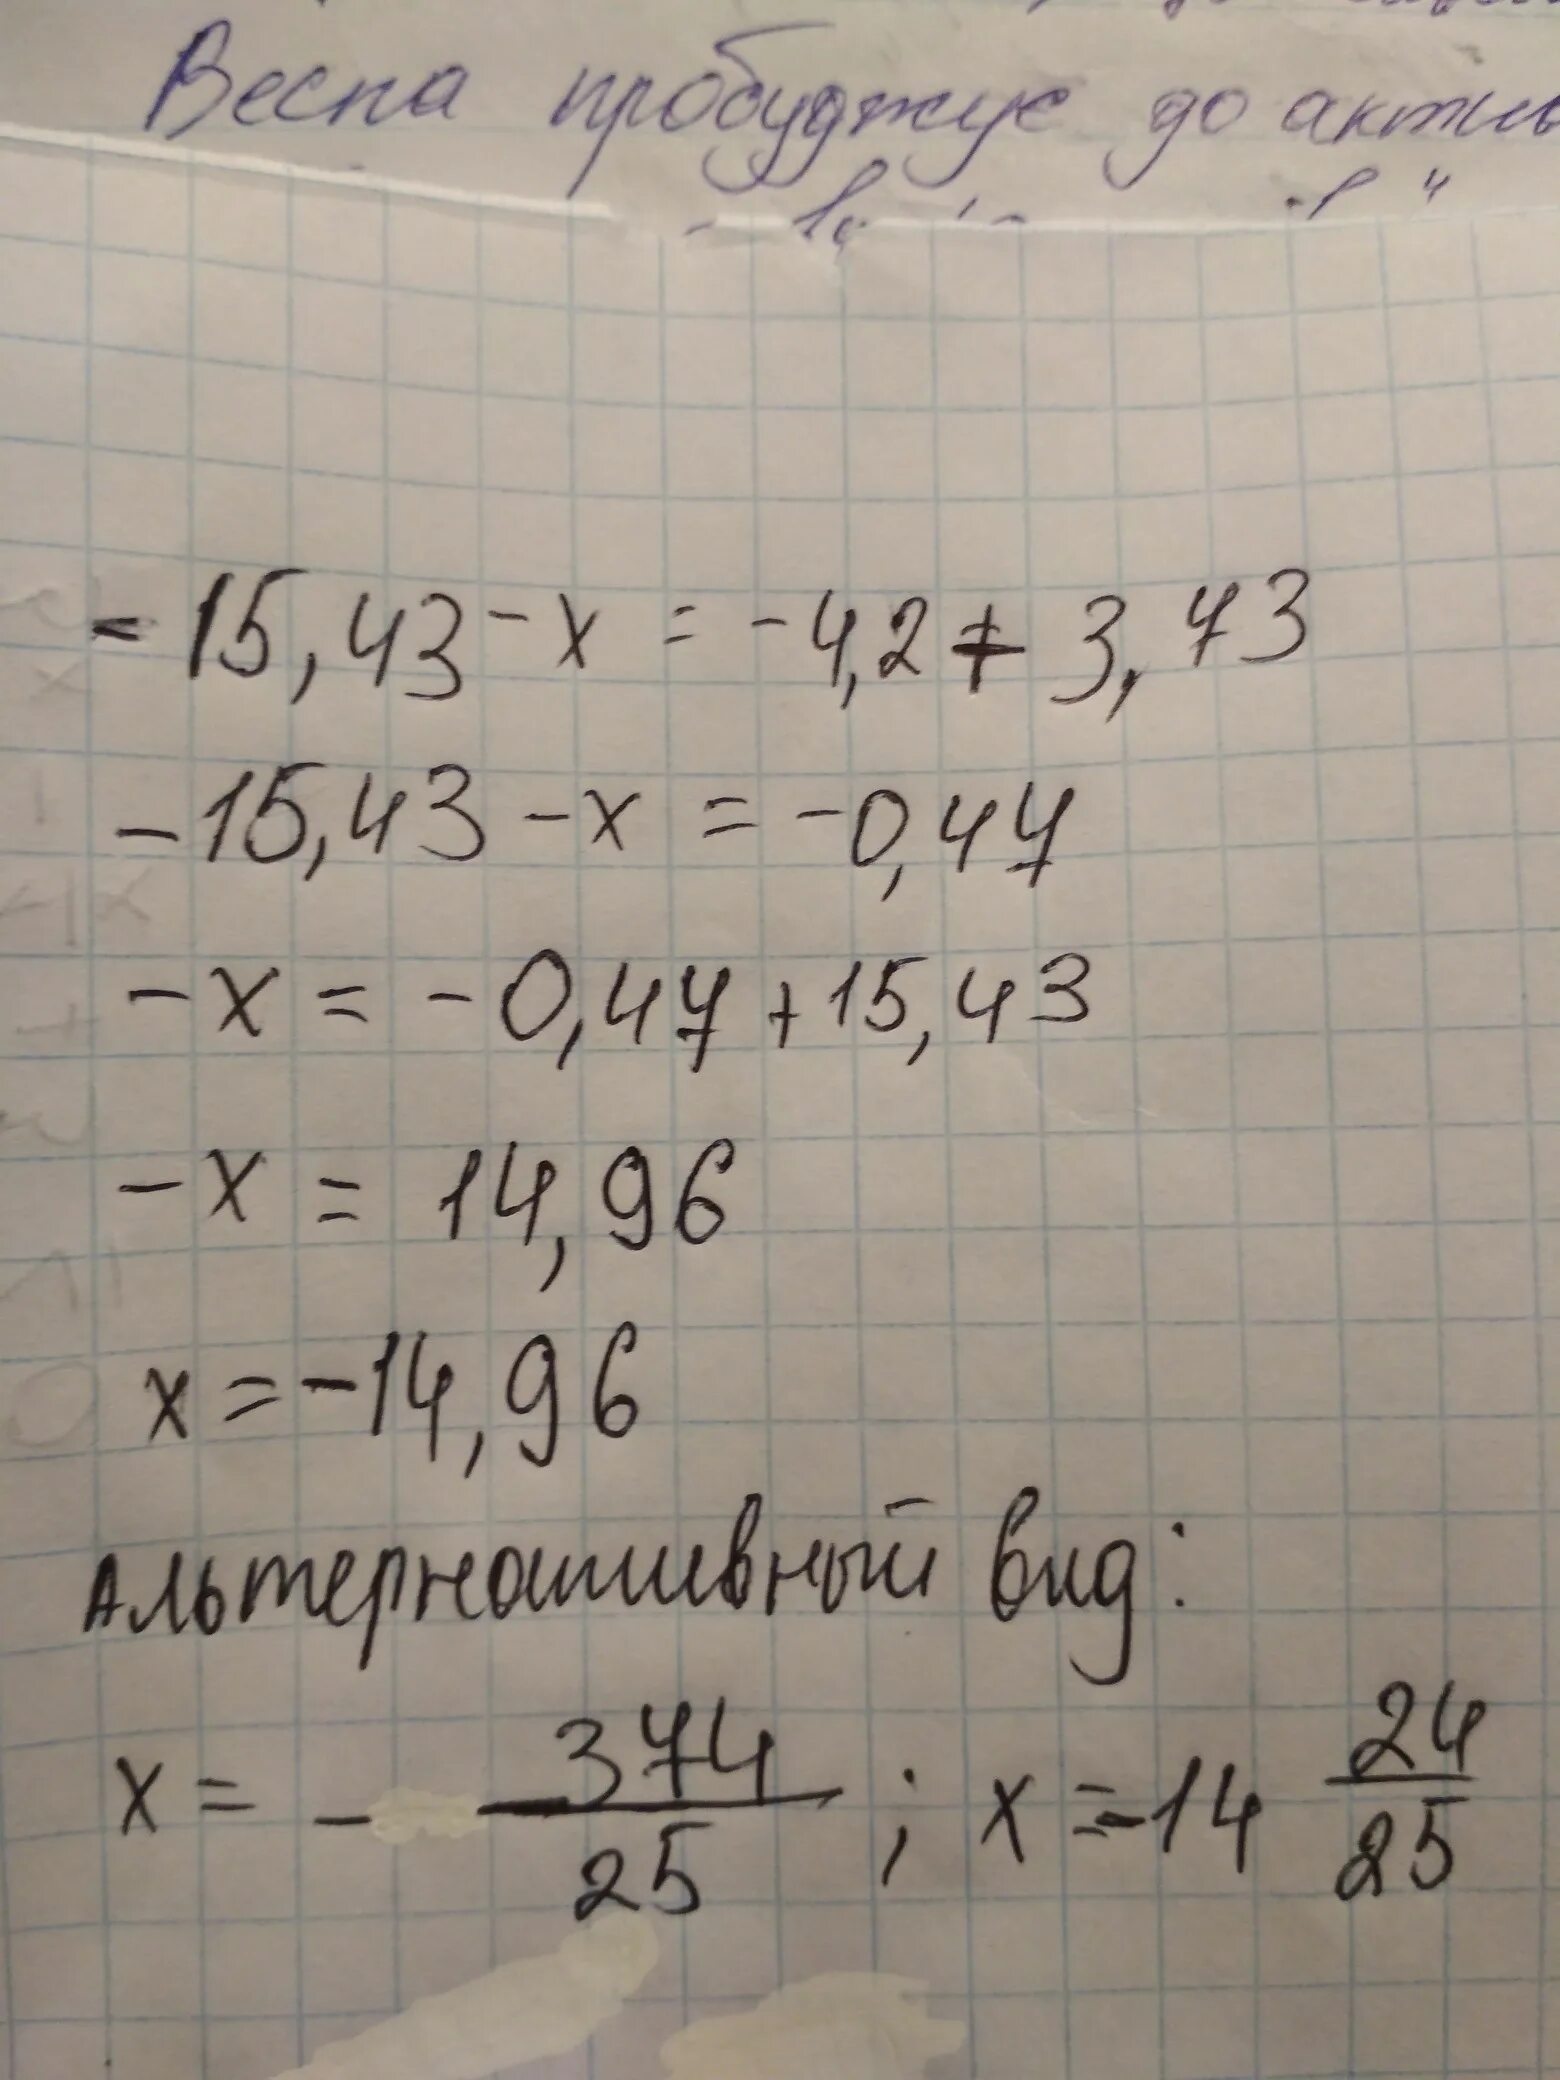 Весна пробуджує до актив
= 15,43 - x = -4,2 + 3,73
-15,43 - x = -0,47
-x = -0,47 + 15,43
-x = 14,96
x = -14,96
Альтернативный вид:
x = - 374/25 ; x = -14 24/25